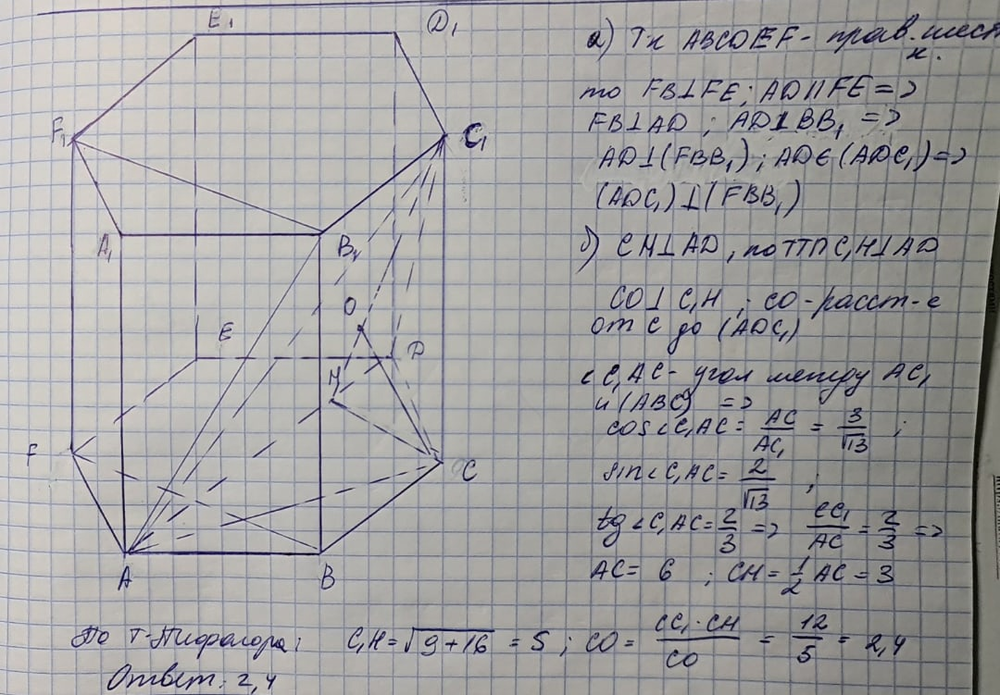 E₁
D₁
F₁
C₁
A₁
B₁
O
E
D
H
F
C
A
B
а) Тк ABCDEF - прав. шест
к.
то FB⊥FE; AD∥FE =>
FB⊥AD ; AD⊥BB₁ =>
AD⊥(FBB₁); AD∈(ADC₁) =>
(ADC₁)⊥(FBB₁)
б) CH⊥AD, по ТТП C₁H⊥AD
CO⊥C₁H ; CO-расст-е
от C до (ADC₁)
∠C₁AC- угол между AC₁
и (ABC) =>
cos∠C₁AC = AC/AC₁ = 3/√13 ;
sin∠C₁AC = 2/√13 ;
tg∠C₁AC = 2/3 => CC₁/AC = 2/3 =>
AC = 6 ; CH = 1/2 AC = 3
По т-Пифагора; C₁H = √9+16 = 5 ; CO = CC₁·CH/CO = 12/5 = 2,4
Ответ: 2,4